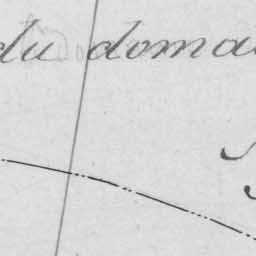 du doma